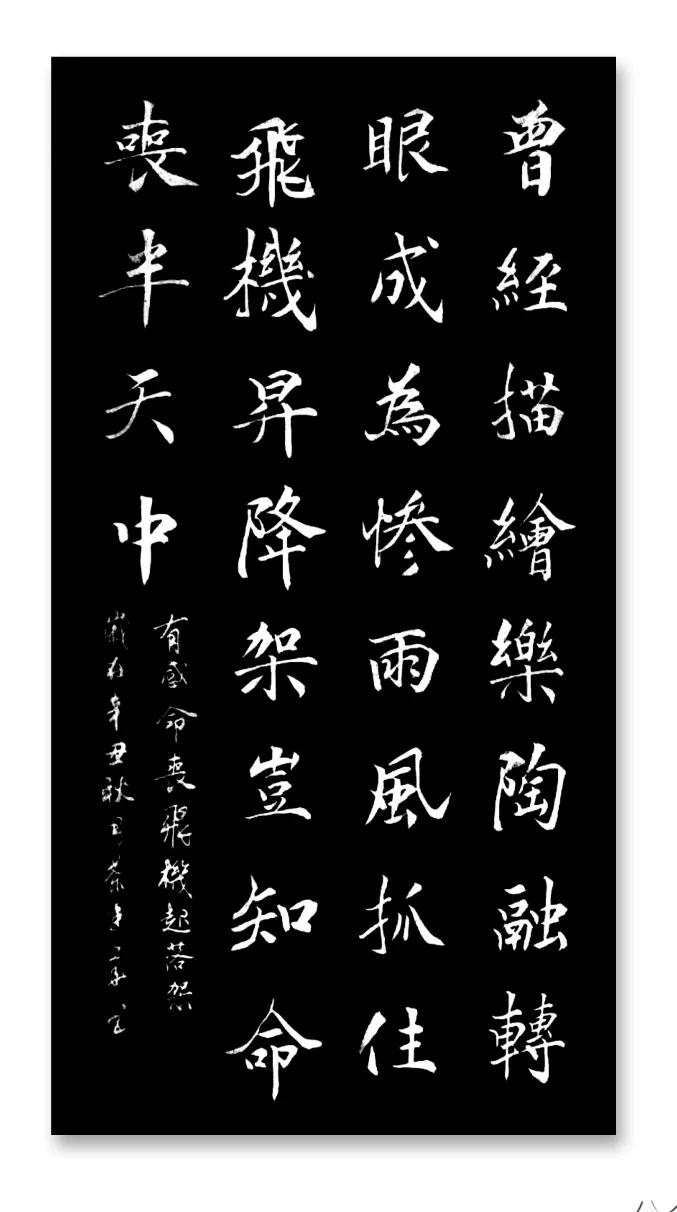 曾經描繪樂陶融轉
眼成為慘雨風抓住
飛機昇降架豈知命
喪半天中
有感命喪飛機起落架
歲在辛丑秋月